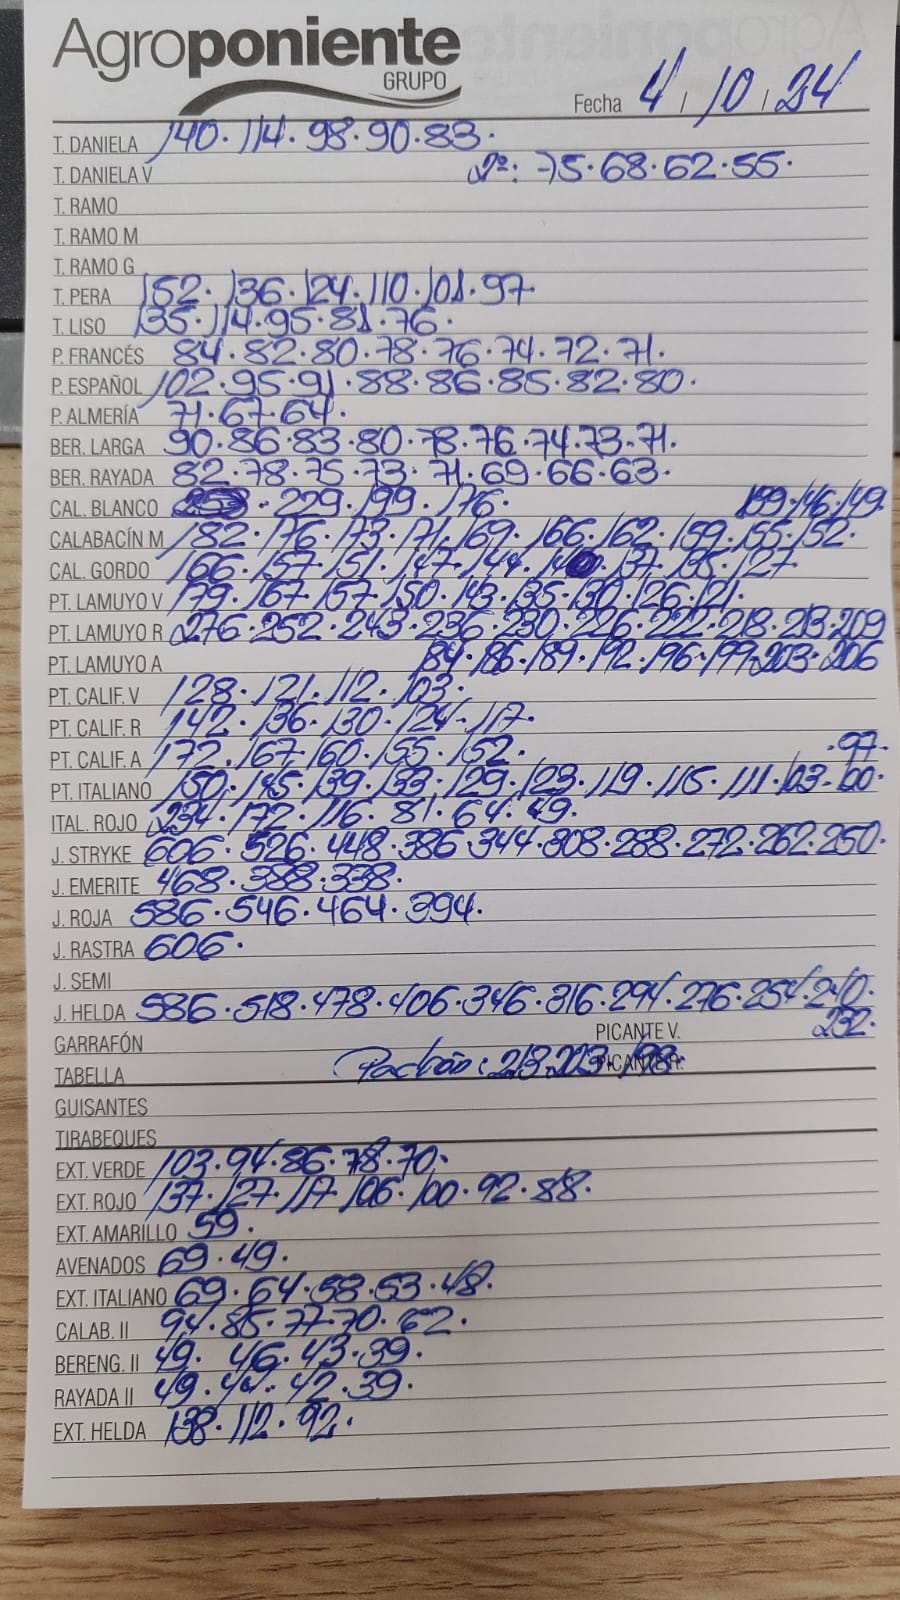 Agroponiente
GRUPO
Fecha 4 / 10 / 24
T. DANIELA 140 · 114 · 98 · 90 · 83 ·
T. DANIELA V 2º: 75 · 68 · 62 · 55 ·
T. RAMO
T. RAMO M
T. RAMO G
T. PERA 152 · 136 · 124 · 110 · 101 · 97
T. LISO 135 · 114 · 95 · 81 · 76 ·
P. FRANCÉS 84 · 82 · 80 · 78 · 76 · 74 · 72 · 71 ·
P. ESPAÑOL 102 · 95 · 91 · 88 · 86 · 85 · 82 · 80 ·
P. ALMERÍA 71 · 67 · 64 ·
BER. LARGA 90 · 86 · 83 · 80 · 78 · 76 · 74 · 73 · 71 ·
BER. RAYADA 82 · 78 · 75 · 73 · 71 · 69 · 66 · 63 ·
CAL. BLANCO · 229 · 199 · 176 · 146 · 149
CALABACÍN M 182 · 176 · 173 · 171 · 169 · 166 · 162 · 159 · 155 · 152 ·
CAL. GORDO 166 · 157 · 151 · 147 · 144 · 137 · 135 · 127
PT. LAMUYO V 179 · 167 · 157 · 150 · 143 · 135 · 130 · 126 · 121 ·
PT. LAMUYO R 276 · 252 · 243 · 236 · 230 · 226 · 222 · 218 · 213 · 209
PT. LAMUYO A 184 · 186 · 189 · 192 · 196 · 199 · 203 · 206
PT. CALIF. V 128 · 121 · 112 · 103 ·
PT. CALIF. R 142 · 136 · 130 · 124 · 117 ·
PT. CALIF. A 172 · 167 · 160 · 155 · 152 · · 97 ·
PT. ITALIANO 150 · 145 · 139 · 133 · 129 · 123 · 119 · 115 · 111 · 103 · 100 ·
ITAL. ROJO 234 · 172 · 116 · 81 · 64 · 49 ·
J. STRYKE 606 · 526 · 448 · 386 · 344 · 308 · 288 · 272 · 262 · 250 ·
J. EMERITE 468 · 388 · 338 ·
J. ROJA 586 · 546 · 464 · 394 ·
J. RASTRA 606 ·
J. SEMI
J. HELDA 586 · 518 · 478 · 406 · 346 · 316 · 294 · 276 · 254 · 240 ·
GARRAFÓN PICANTE V. 232 ·
TABELLA Padrón: 213 · 203 · 198 · PICANTE R.
GUISANTES
TIRABEQUES
EXT. VERDE 103 · 94 · 86 · 78 · 70 ·
EXT. ROJO 137 · 127 · 117 · 106 · 100 · 92 · 88 ·
EXT. AMARILLO 59 ·
AVENADOS 69 · 49 ·
EXT. ITALIANO 69 · 64 · 58 · 53 · 48 ·
CALAB. II 94 · 85 · 77 · 70 · 62 ·
BERENG. II 49 · 46 · 43 · 39 ·
RAYADA II 49 · 44 · 42 · 39 ·
EXT. HELDA 138 · 112 · 92 ·